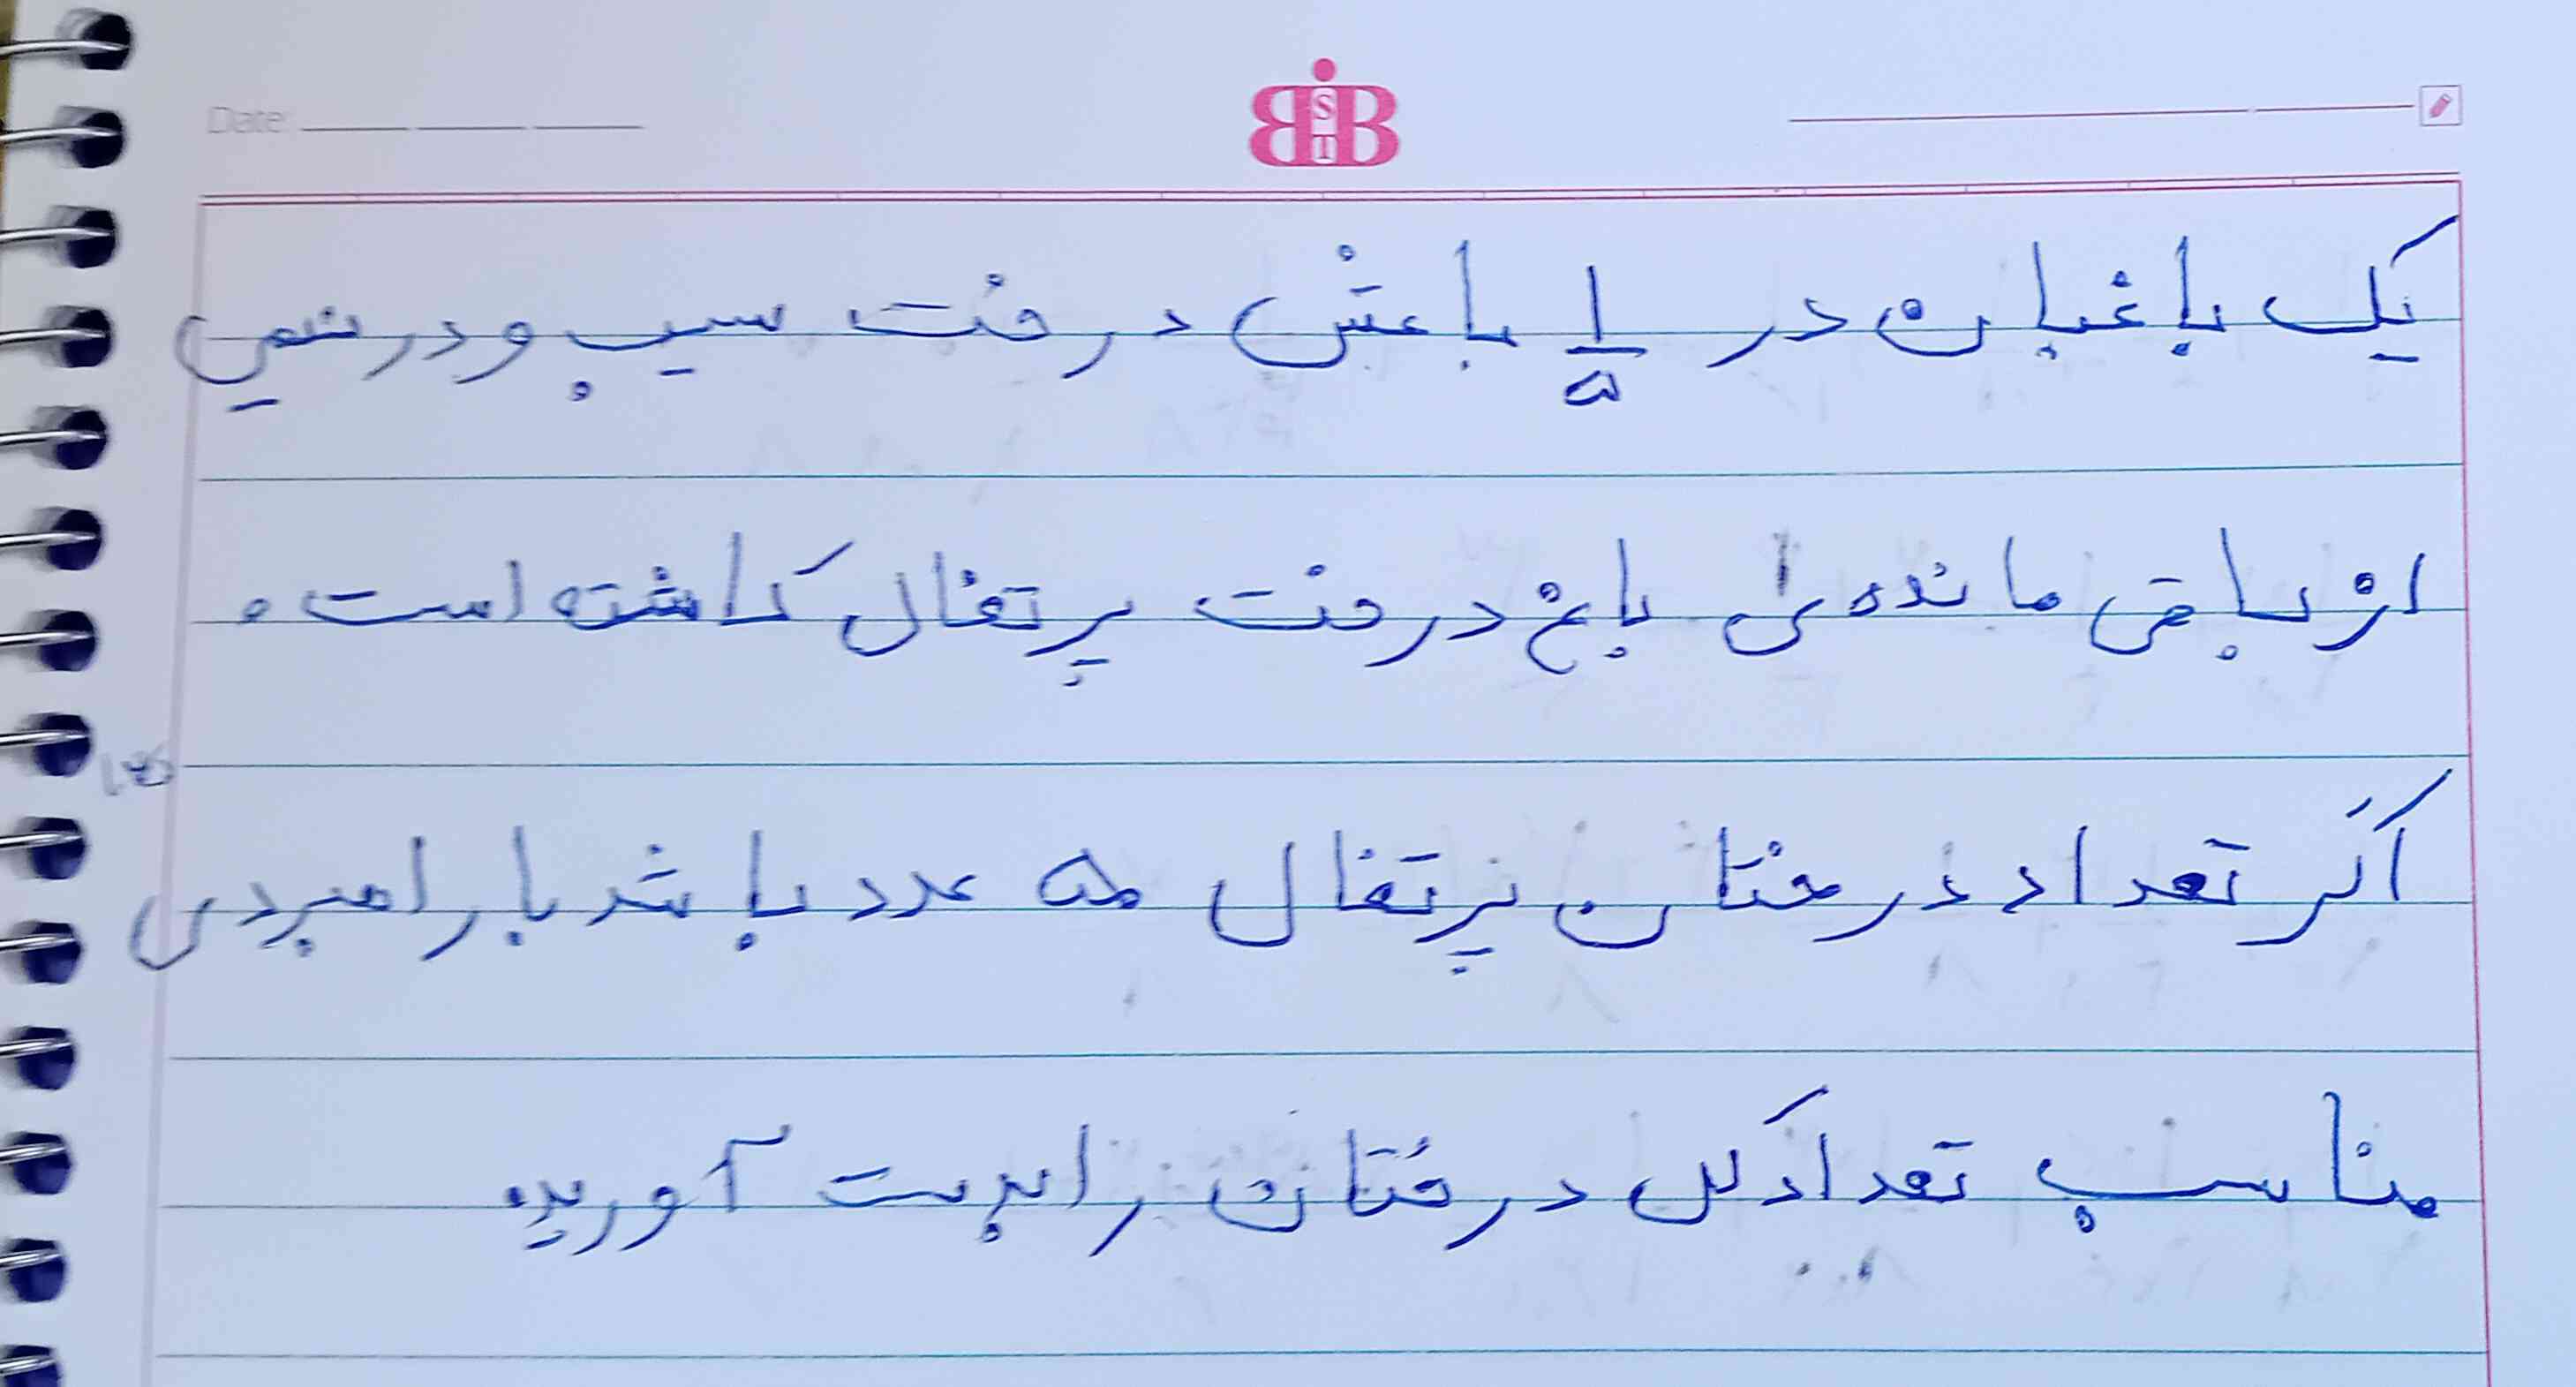 Date:
BSTB
یک باغبان در ۱/۵ باغش درخت سیب و در نیمی
از باقی مانده ی باغ درخت پرتقال کاشته است.
اگر تعداد درختان پرتقال عدد باشد با راهبردی
مناسب تعداد کل درختان را بدست آورید.